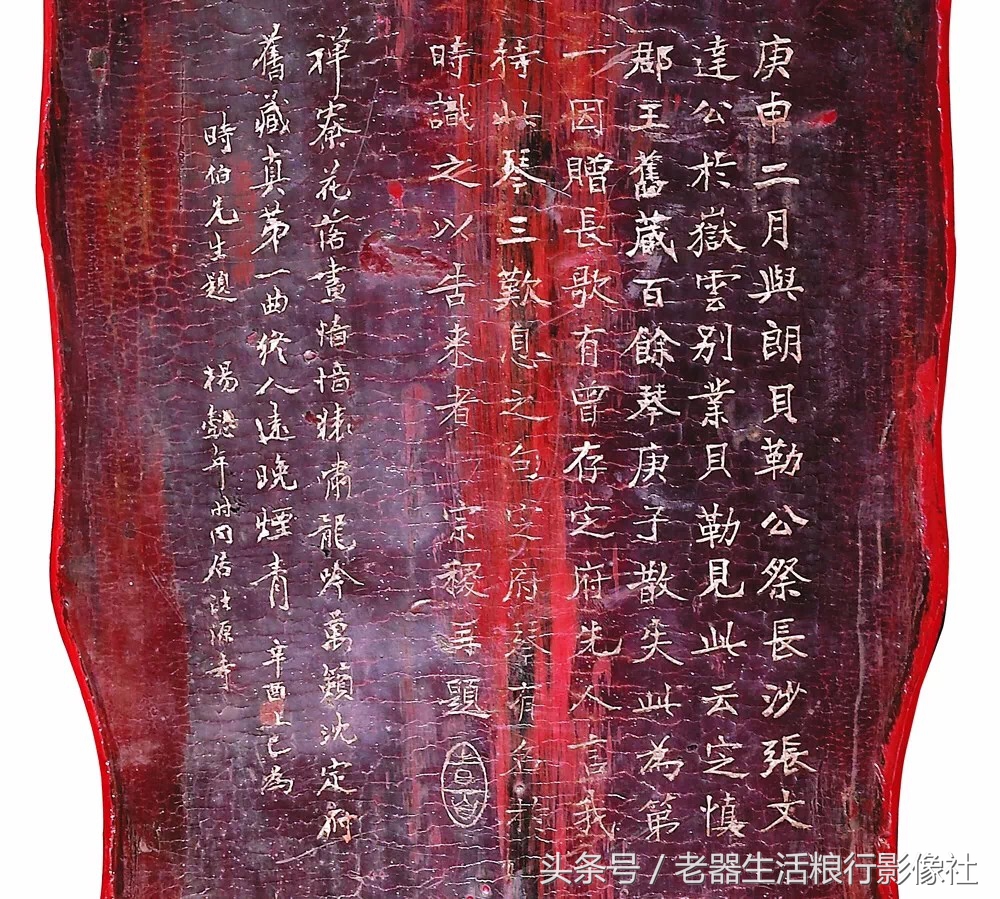 庚申二月與朗貝勒公祭長沙張文
達公於嶽雲别業貝勒見此云定慎
郡王舊藏百餘琴庚子散失此為第
一因贈長歌有曾存定府先人言我
持此琴三歎息之句定府琴有名於
時識之以告来者 宗稷再題
禅寮花落晝愔愔猿嘯龍吟萬籟沈定府
舊藏真第一曲終人遠晚煙青 辛酉上巳為
時伯先生題 楊懿年时同居法源寺
头条号 / 老器生活粮行影像社